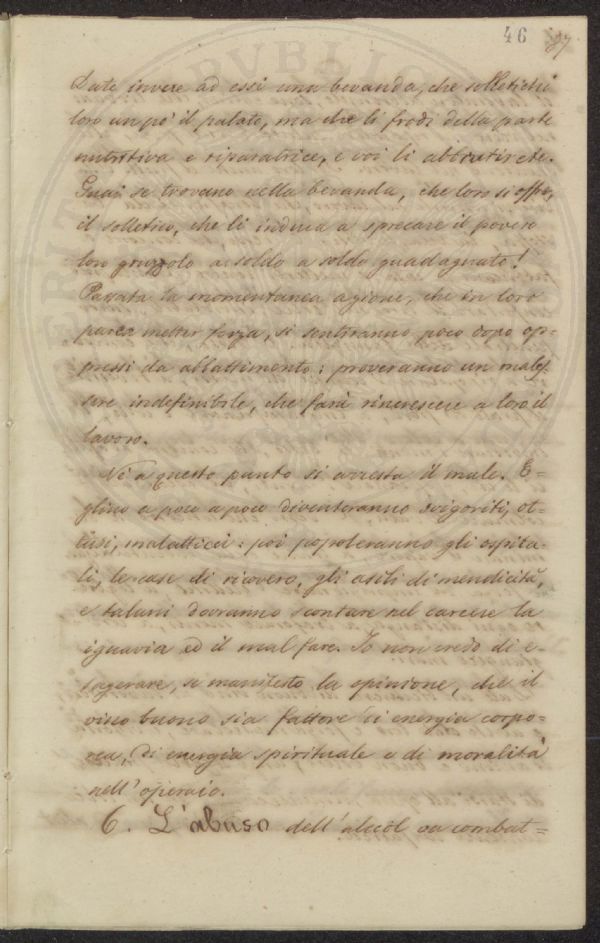 46 87
Date invece ad essi una bevanda, che solletichi
loro un po' il palato, ma che li frodi della parte
nutritiva e riparatrice, e voi li abbrutirete.
Guai se trovano nella bevanda, che loro si offre,
il solletico, che li induca a sprecare il povero
loro gruzzolo a soldo a soldo guadagnato!
Passata la momentanea agione, che in loro
parea metter forza, si sentiranno poco dopo op-
pressi da abbattimento: proveranno un males-
sere indefinibile, che farà rincrescere a loro il
lavoro.
Né a questo punto si arresta il male. E-
glino a poco a poco diventeranno svigoriti, ot-
tusi, malatticci: poi popoleranno gli ospita-
li, le case di ricovero, gli asili di mendicità,
e taluni dovranno scontare nel carcere la
ignavia ed il mal fare. Io non credo di e-
sagerare, se manifesto la opinione, che il
vino buono sia fattore di energia corpo-
rea, di energia spirituale e di moralità
nell'operaio.
6. L'abuso dell'alcöl va combat=